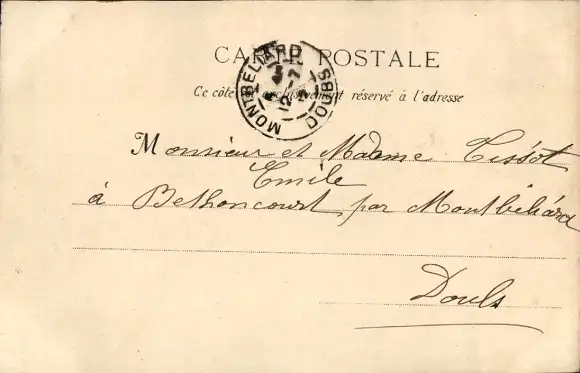 CARTE POSTALE
Ce côté est exclusivement réservé à l'adresse
MONTBELIARD
DOUBS
Monsieur et Madame Tissot
Emile
à Bethoncourt par Montbéliard
Doubs